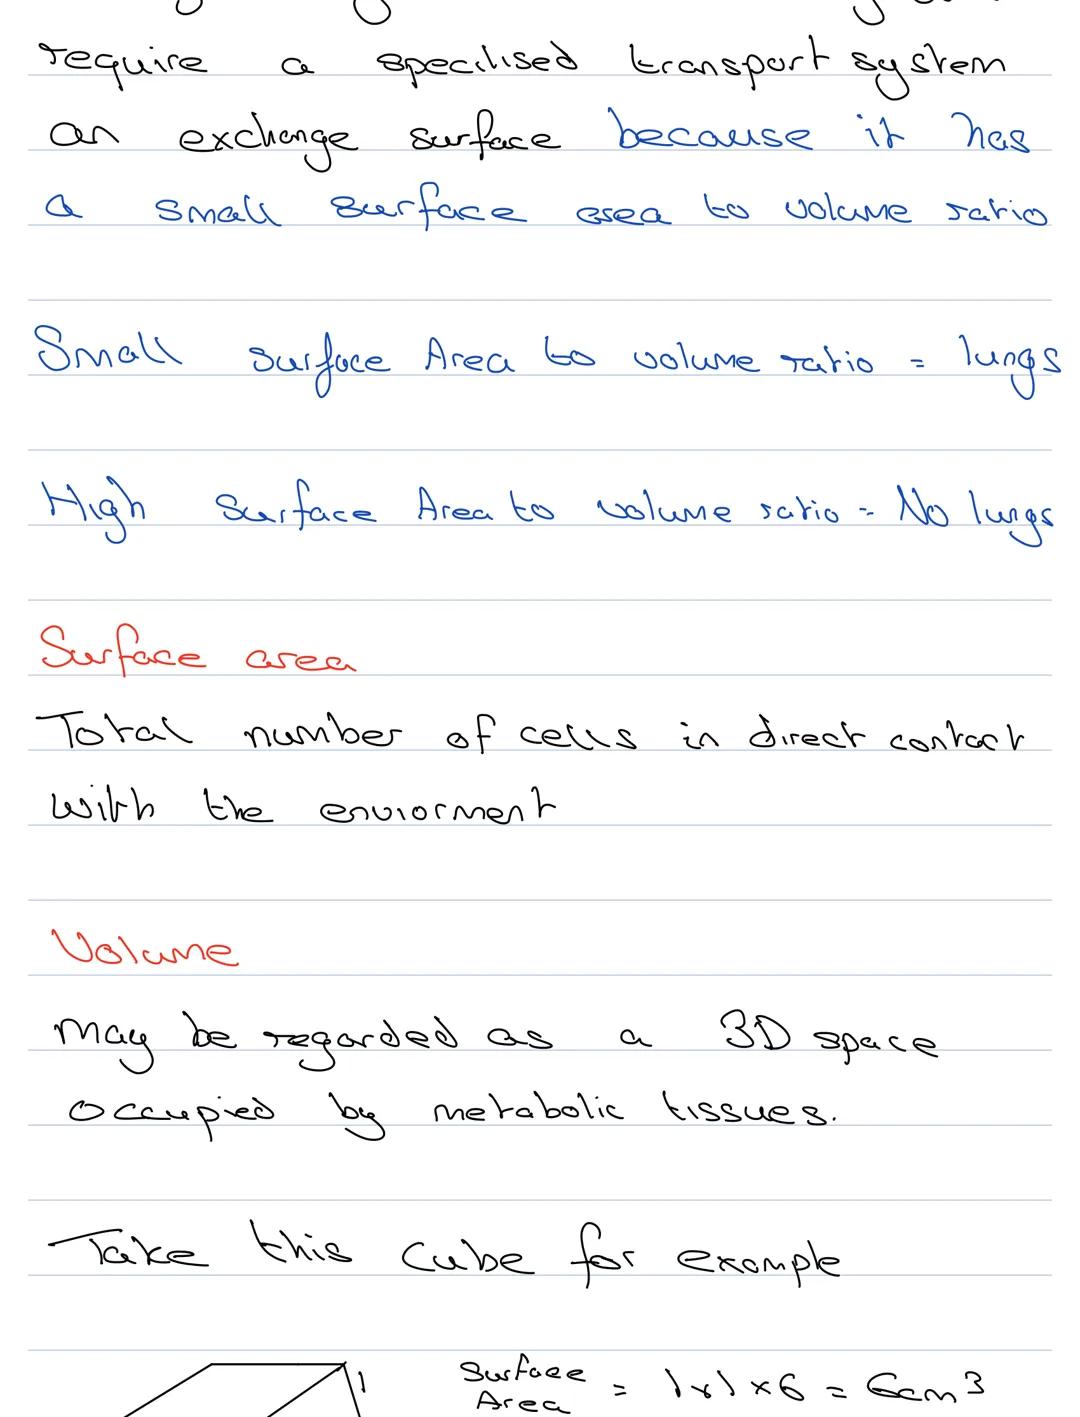 require a specilised transport system
an exchange surface because it has
a small surface area to volume ratio
Small surface Area to volume ratio = lungs
High Surface Area to volume ratio = No lungs
Surface area
Total number of cells in direct contact
with the enviorment
Volume
may be regarded as a 3D space
occupied by metabolic tissues.
Take this cube for example
1
Surface Area = 1x1x6 = 6cm3